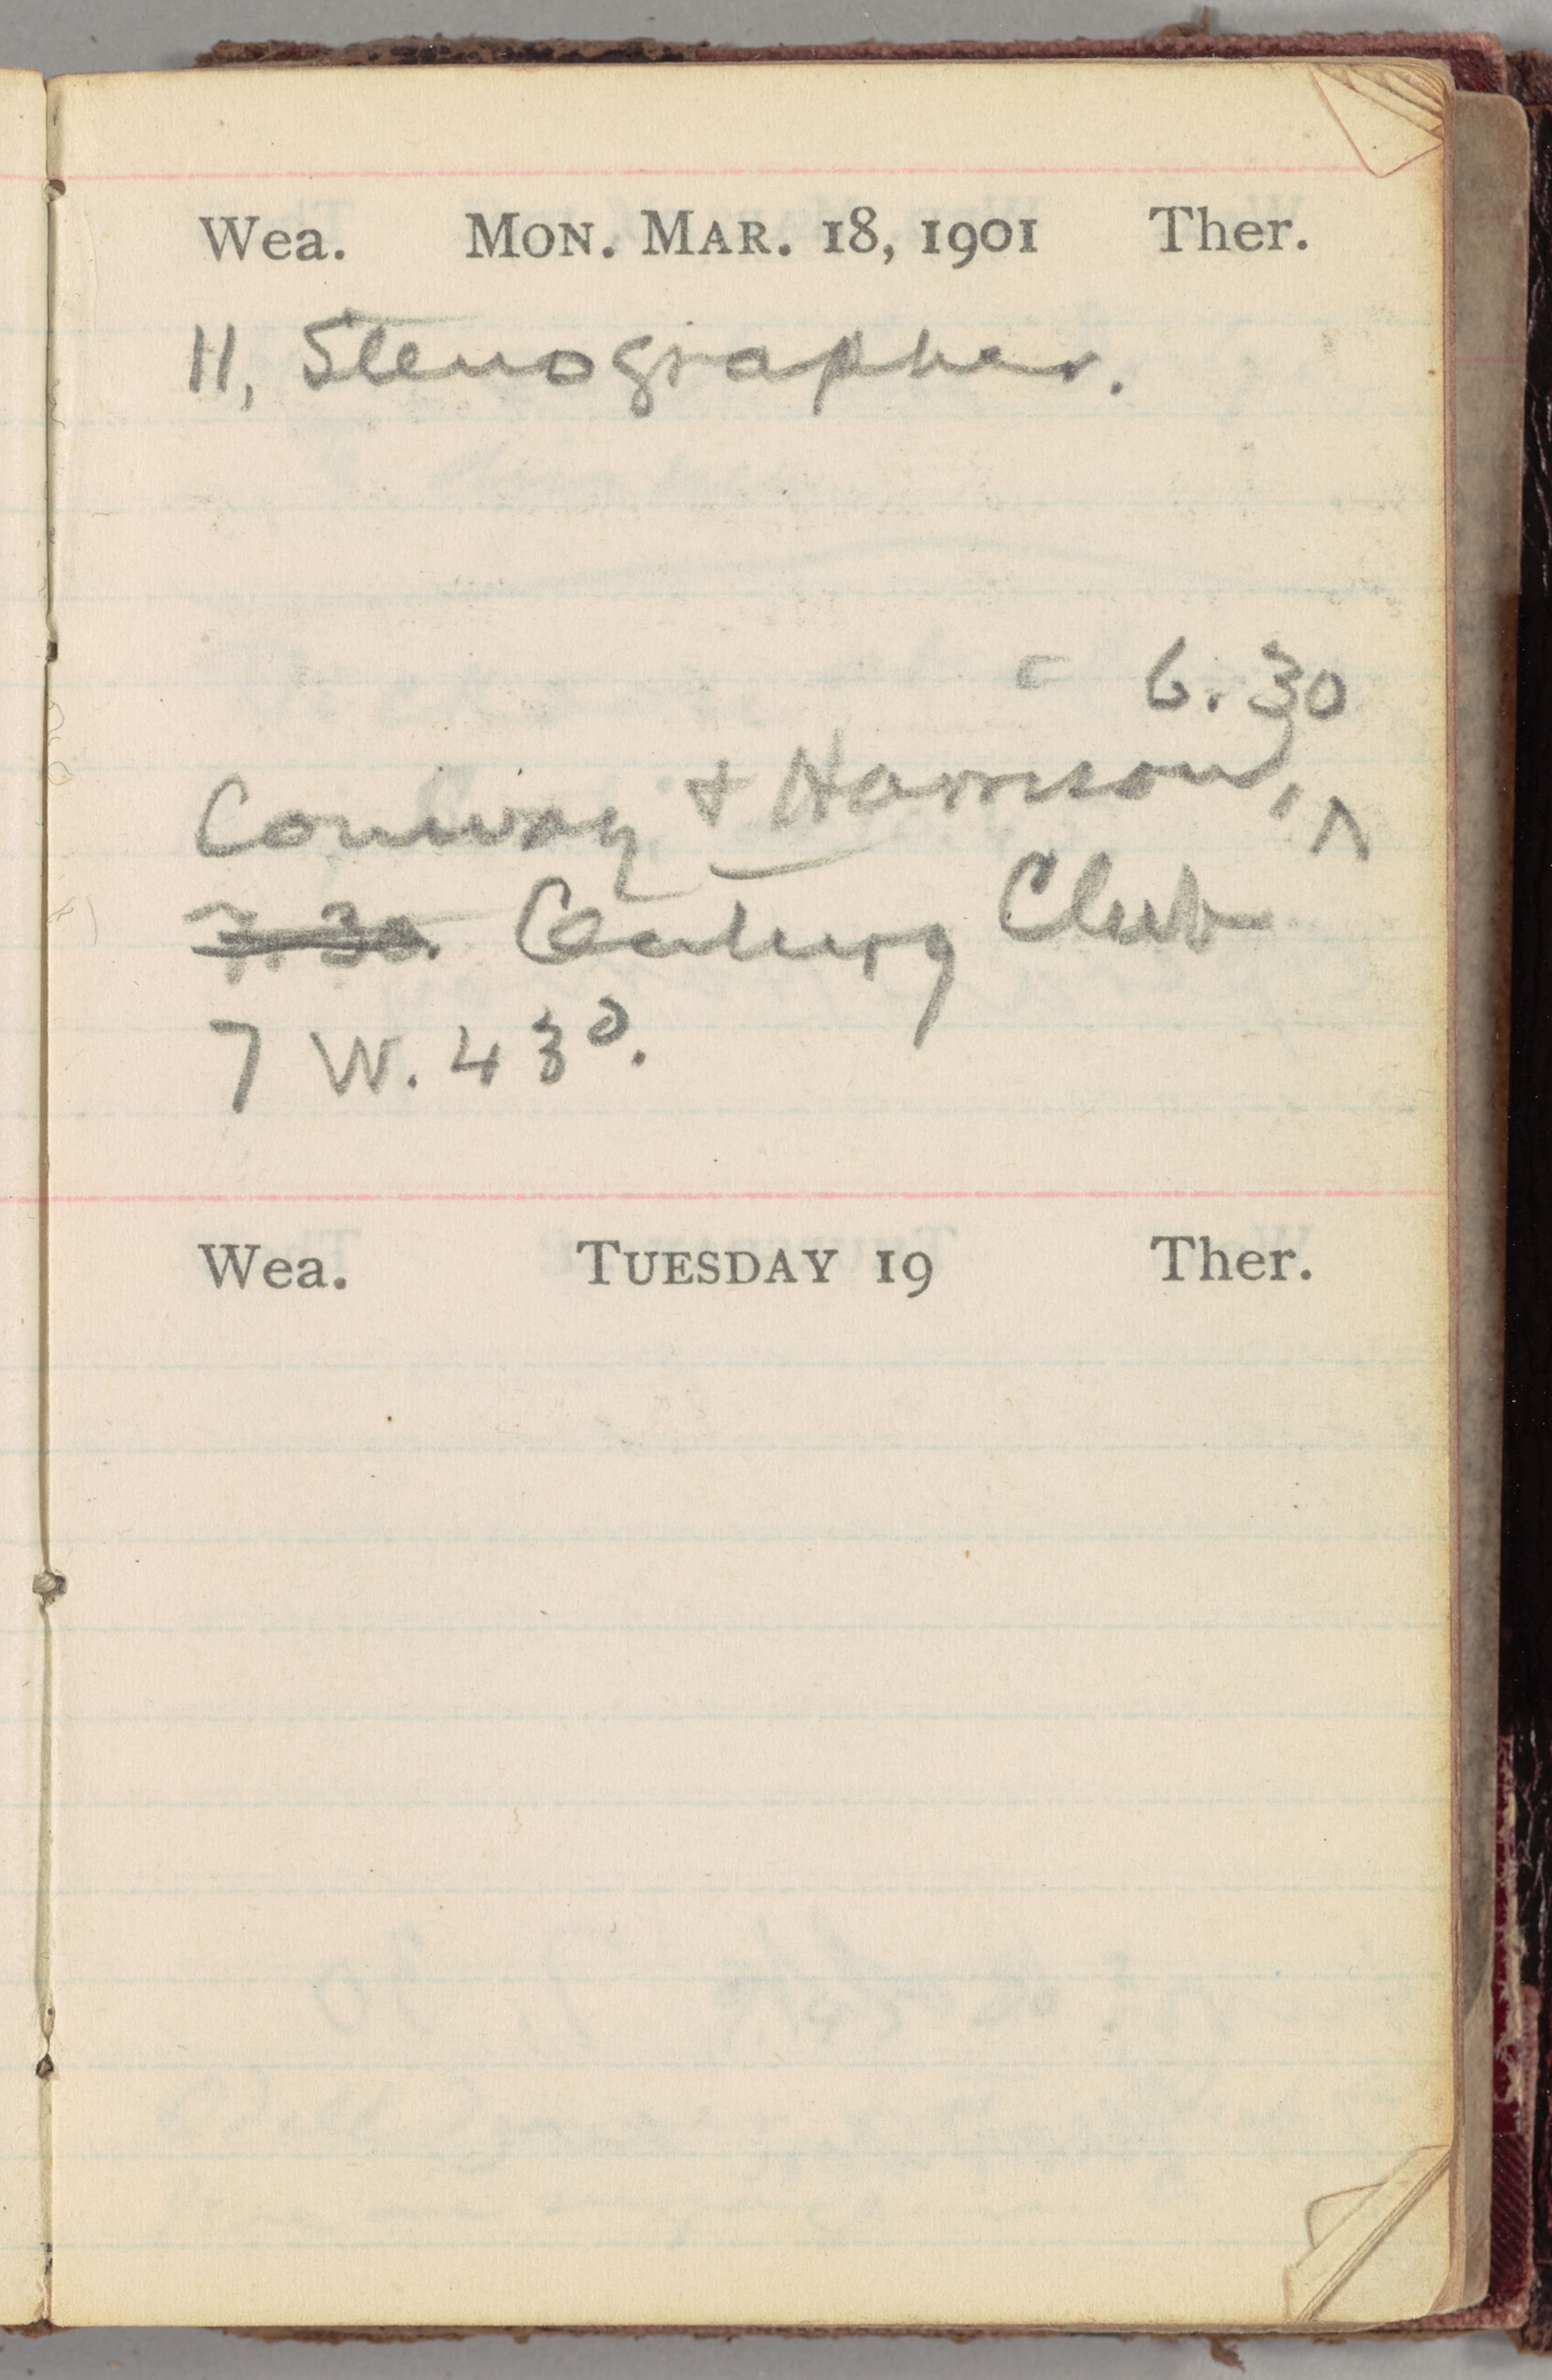 Wea. MON. MAR. 18, 1901 Ther.
11, Stenographer.
6.30
Conway & Harrison, ^
7.30. Century Club
7 W. 43^d.
Wea. TUESDAY 19 Ther.